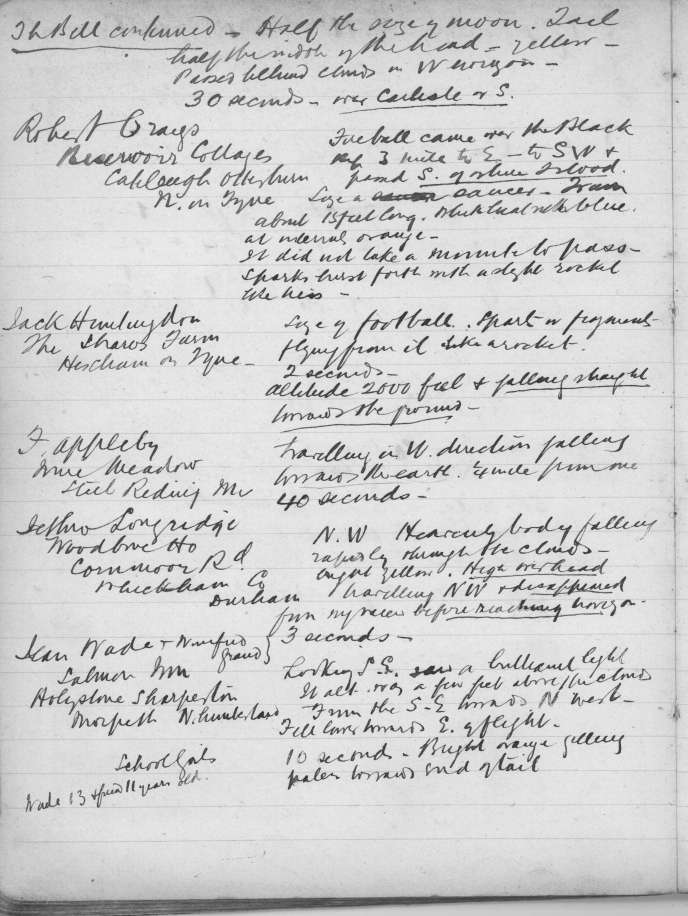 Th Bell continued - Half the size of moon. Tail
half the width of the head - yellow -
Passed behind clouds on W horizon -
30 seconds - over Carlisle or S.
Robert Craigs
Reservoir Cottages
Catcleugh Otterburn
N. on Tyne
Fireball came over the Black
3 mile to E - to SW &
passed S. of
Size a saucer - Train
about 15 feet long. blue.
at intervals orange -
It did not take a minute to pass -
Sparks burst forth with a slight rocket
like hiss -
Jack Huntingdon
The Farm
Hexham on Tyne -
Size of football. Sparks or fragments
flying from it like a rocket.
2 seconds -
altitude 2000 feet & falling straight
towards the ground -
F. Appleby
Meadow
Steel Riding Mill
Travelling in W. direction falling
towards the earth. 1/4 mile from me
40 seconds -
Jethro Longridge
Woodbine Ho
Cornmoor Rd
Whickham Co
Durham
N.W Heavenly body falling
rapidly through the clouds -
bright yellow. High overhead
travelling NW & disappeared
from my view before reaching horizon.
3 seconds -
Jean Wade & Winifred
Salmon Inn
Holystone Sharperton
Morpeth N.humberland
School Girls
Wade 13 & friend 11 years old.
Looking S.E. saw a brilliant light
It was a few feet above the clouds
From the S-E towards N West -
Fell lower towards E. of flight -
10 seconds - Bright orange getting
paler towards end of tail